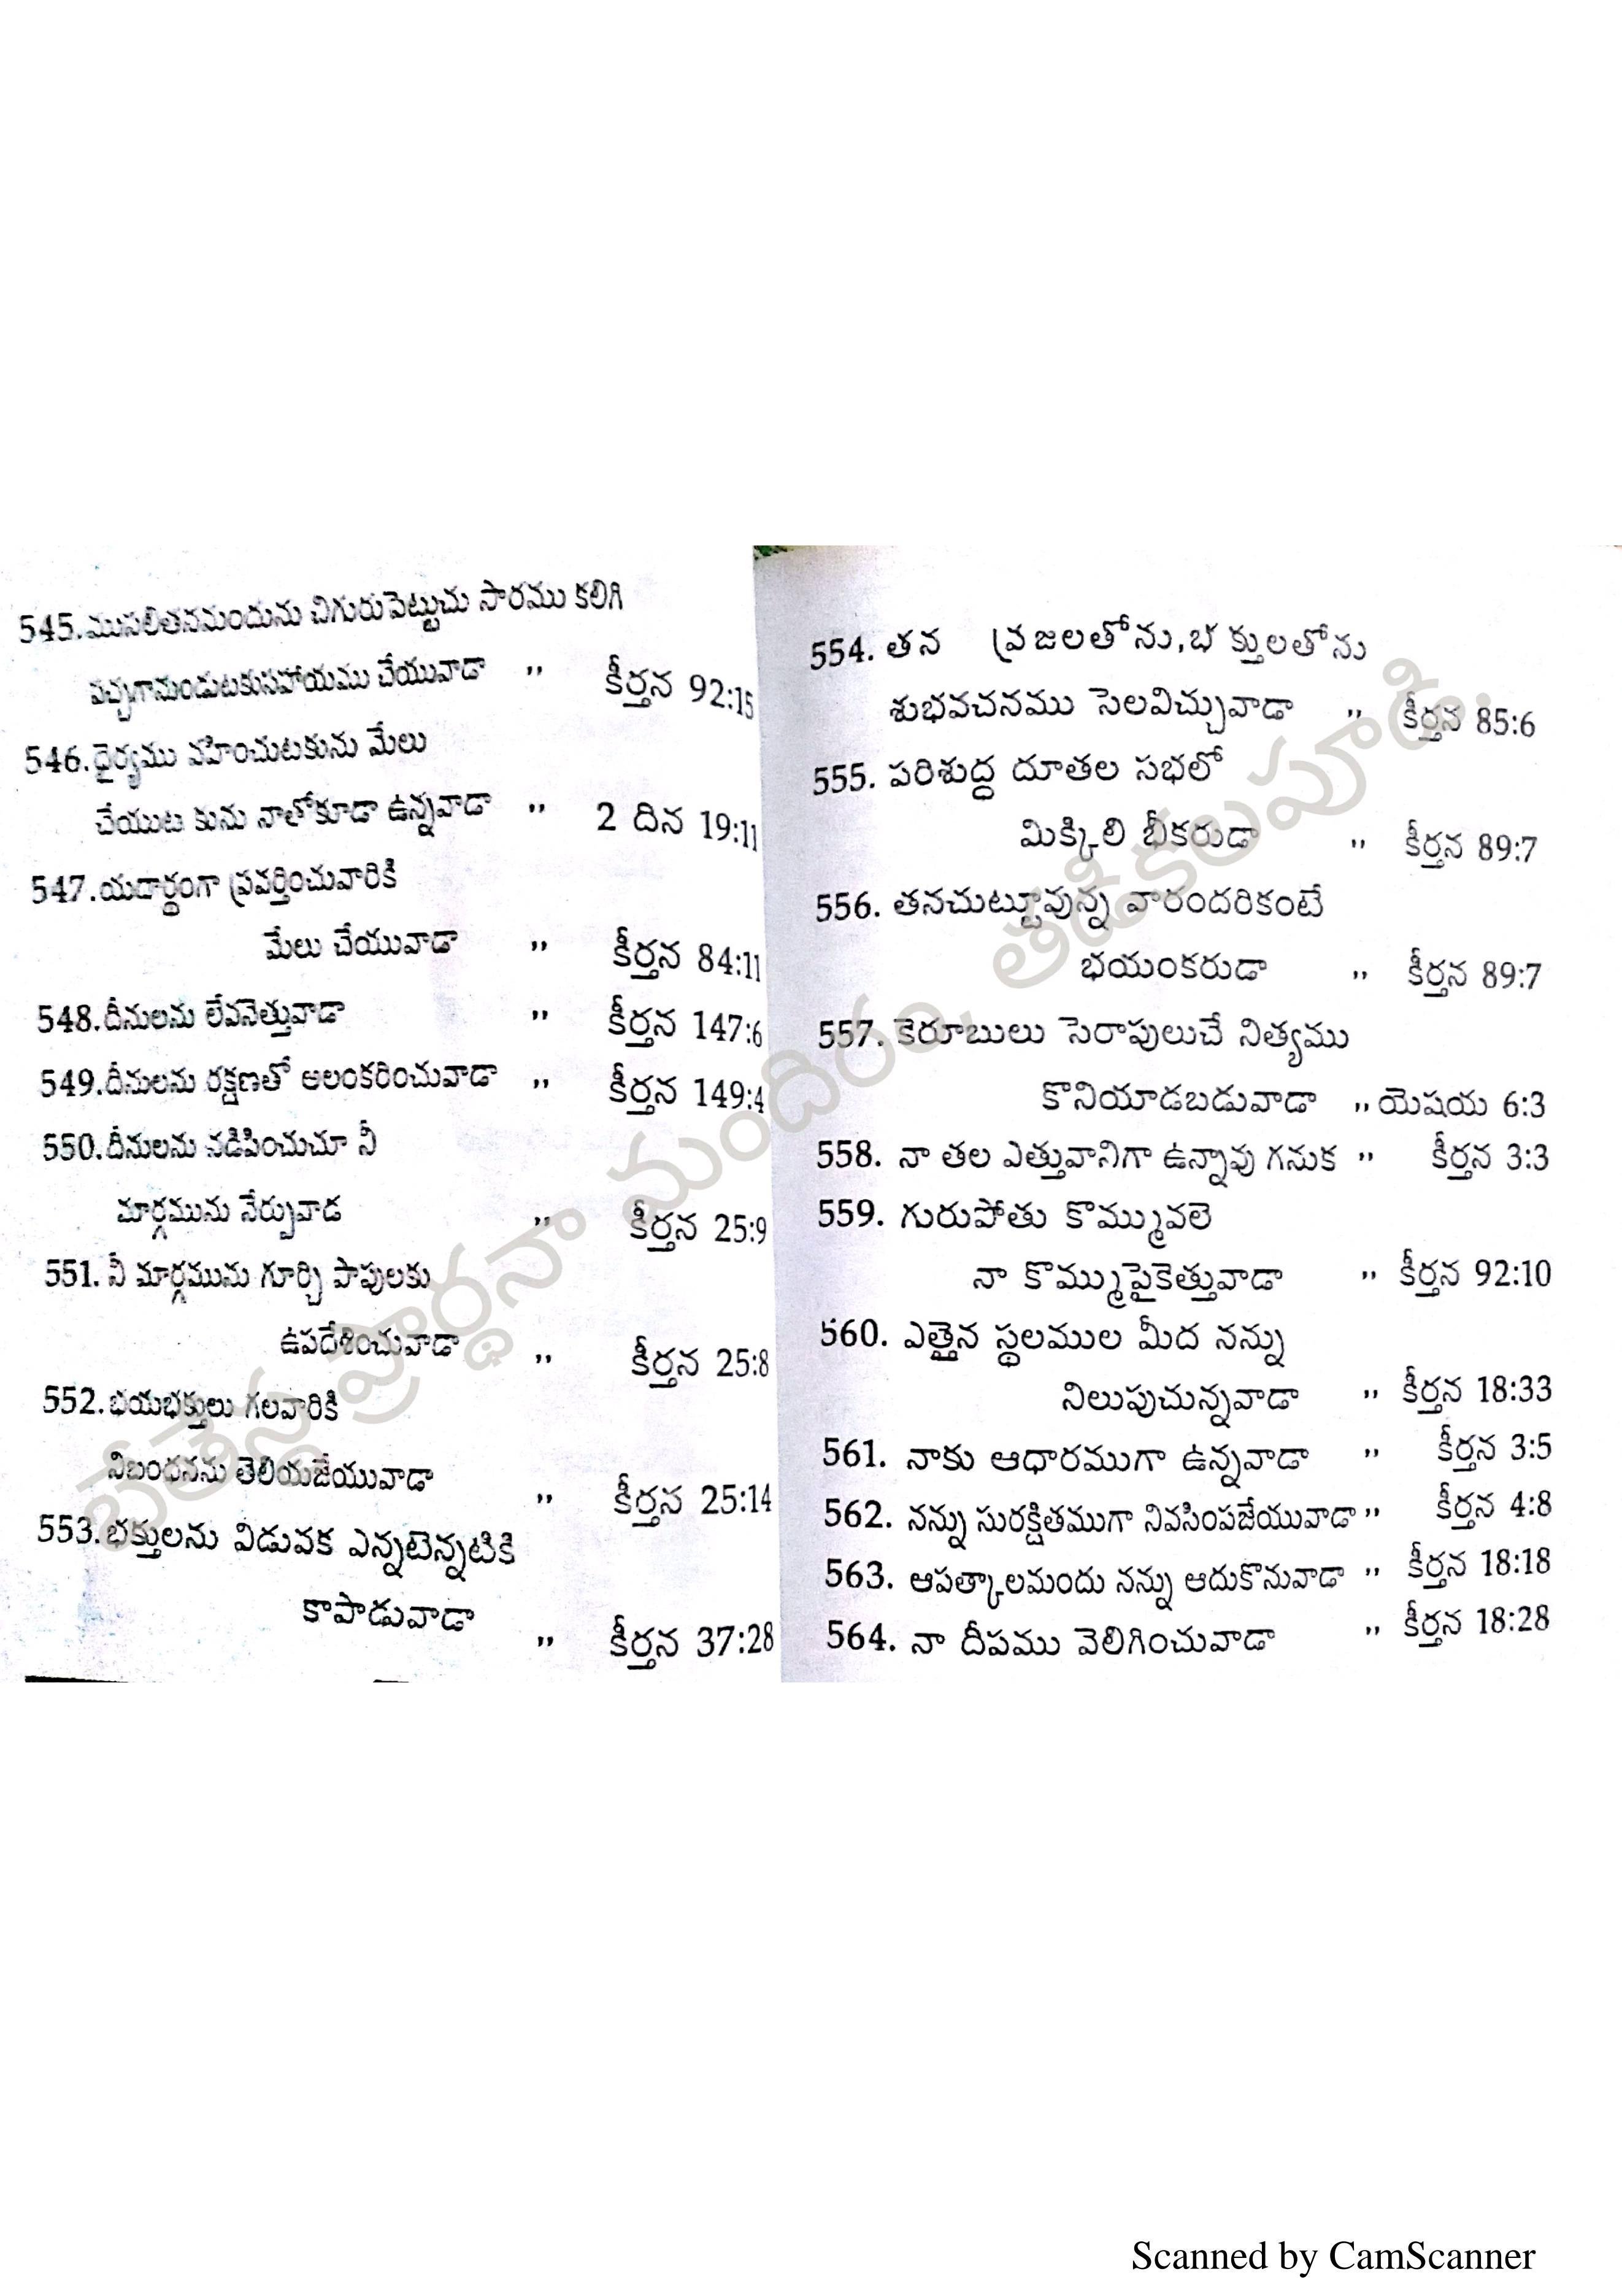 545. ముసలితనమందును చిగురుపెట్టుచు సారము కలిగి
పచ్చగానుండుటకుసహాయము చేయువాడా ,, కీర్తన 92:15
546. ధైర్యము వహించుటకును మేలు
చేయుట కును నాతోకూడా ఉన్నవాడా ,, 2 దిన 19:11
547. యదార్థంగా ప్రవర్తించువారికి
మేలు చేయువాడా ,, కీర్తన 84:11
548. దీనులను లేవనెత్తువాడా ,, కీర్తన 147:6
549. దీనులను రక్షణతో అలంకరించువాడా ,, కీర్తన 149:4
550. దీనులను నడిపించుచూ నీ
మార్గమును నేర్పువాడ ,, కీర్తన 25:9
551. నీ మార్గమును గూర్చి పాపులకు
ఉపదేశించువాడా ,, కీర్తన 25:8
552. భయభక్తులు గలవారికి
నిబంధనను తెలియజేయువాడా ,, కీర్తన 25:14
553. భక్తులను విడువక ఎన్నటెన్నటికి
కాపాడువాడా ,, కీర్తన 37:28
554. తన ప్రజలతోను, భక్తులతోను
శుభవచనము సెలవిచ్చువాడా ,, కీర్తన 85:6
555. పరిశుద్ధ దూతల సభలో
మిక్కిలి భీకరుడా ,, కీర్తన 89:7
556. తనచుట్టూవున్న వారందరికంటే
భయంకరుడా ,, కీర్తన 89:7
557. కెరూబులు సెరాపులుచే నిత్యము
కొనియాడబడువాడా ,, యెషయ 6:3
558. నా తల ఎత్తువానిగా ఉన్నావు గనుక ,, కీర్తన 3:3
559. గురుపోతు కొమ్మువలె
నా కొమ్ముపైకెత్తువాడా ,, కీర్తన 92:10
560. ఎత్తైన స్థలముల మీద నన్ను
నిలుపుచున్నవాడా ,, కీర్తన 18:33
561. నాకు ఆధారముగా ఉన్నవాడా ,, కీర్తన 3:5
562. నన్ను సురక్షితముగా నివసింపజేయువాడా ,, కీర్తన 4:8
563. ఆపత్కాలమందు నన్ను ఆదుకొనువాడా ,, కీర్తన 18:18
564. నా దీపము వెలిగించువాడా ,, కీర్తన 18:28
బేతేస్థ ప్రార్థనా మందిరం, తాడికలపూడి.
Scanned by CamScanner